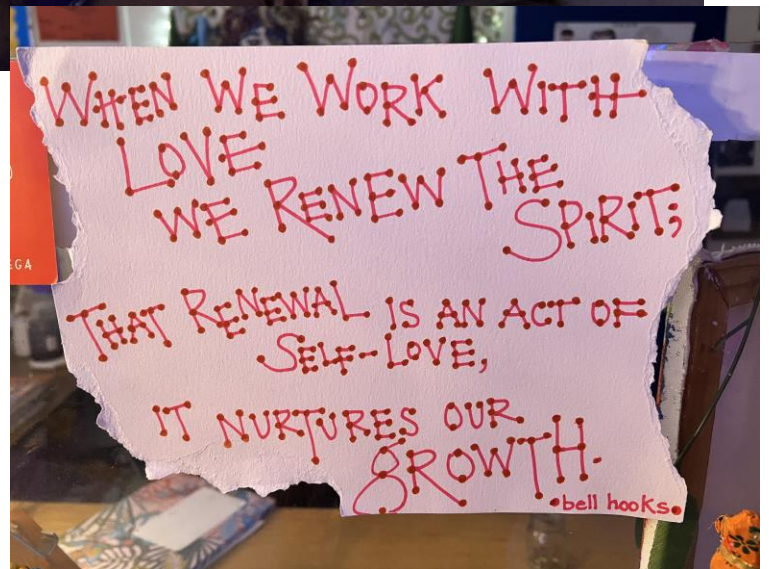 WHEN WE WORK WITH
LOVE
WE RENEW THE
SPIRIT;
THAT RENEWAL IS AN ACT OF
SELF-LOVE,
IT NURTURES OUR
GROWTH.
•bell hooks•
EGA